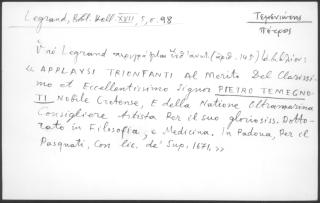 Legrand, Bibl. Hell. XVII, 5, σ. 98
Τεμενιώτης
Πέτρος
Ὑπό Legrand
« APPLAUSI TRIONFANTI Al Merito Del Clarissi-
mo et Eccellentissimo Signor PIETRO TEMEGNO-
TI Nobile Cretense, E della Natione Oltramarina
Consigliere Artista Per il suo gloriosiss. Dotto-
rato in Filosofia, e Medicina. In Padova, Per il
Pasquati, Con lic. de' Sup. 1671. »